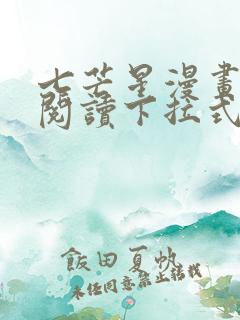 七芒星漫畫
閱讀下拉式
飯田夏帆
未經同意禁止轉載